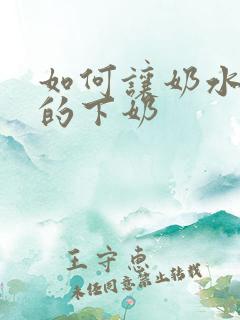 如何讓奶水
的下奶
王守惠
未经同意禁止转载